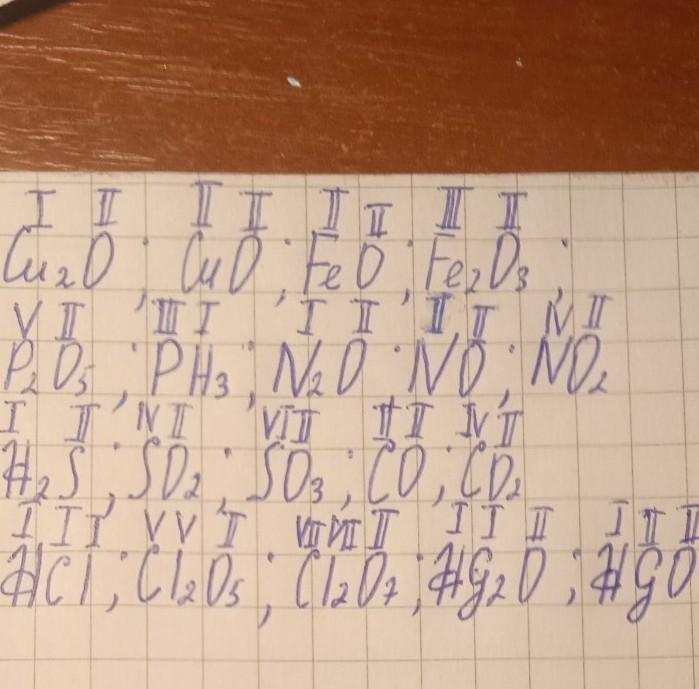 I II II II II II III II
Cu₂O; CuO; FeO; Fe₂O₃;
V II III I I II II II IV II
P₂O₅; PH₃; N₂O; NO; NO₂
I II IV II VI II II II IV II
H₂S; SO₂; SO₃; CO; CO₂
I I I V V II VII VII II I I II I II II
HCl; Cl₂O₅; Cl₂O₇; Hg₂O; HgO